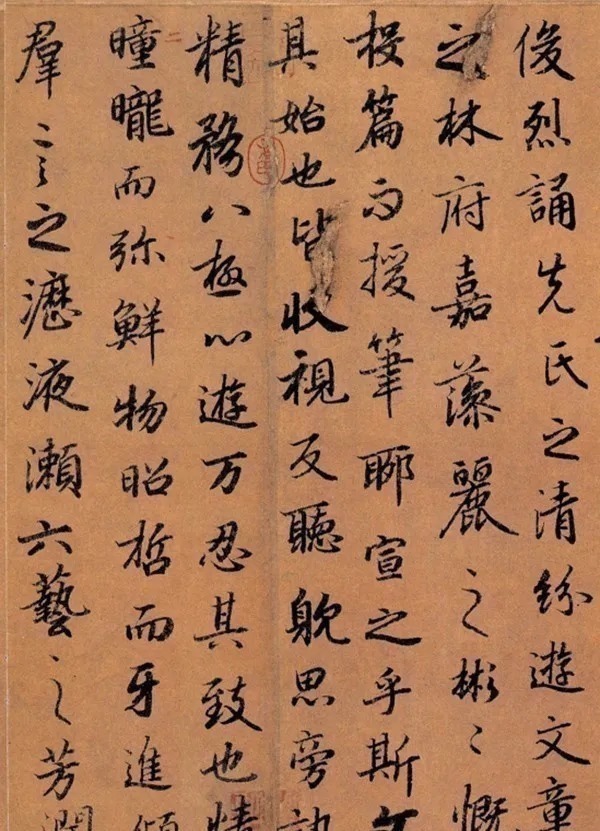 俊烈誦先氏之清紛遊文章
之林府嘉藻麗之彬〻慨
投篇而援筆聊宣之乎斯文
其始也皆收視反聽躭思旁訊
精務八極心遊万忍其致也情
曈曨而弥鮮物昭哲而牙進傾
羣言之瀝液瀨六藝之芳潤